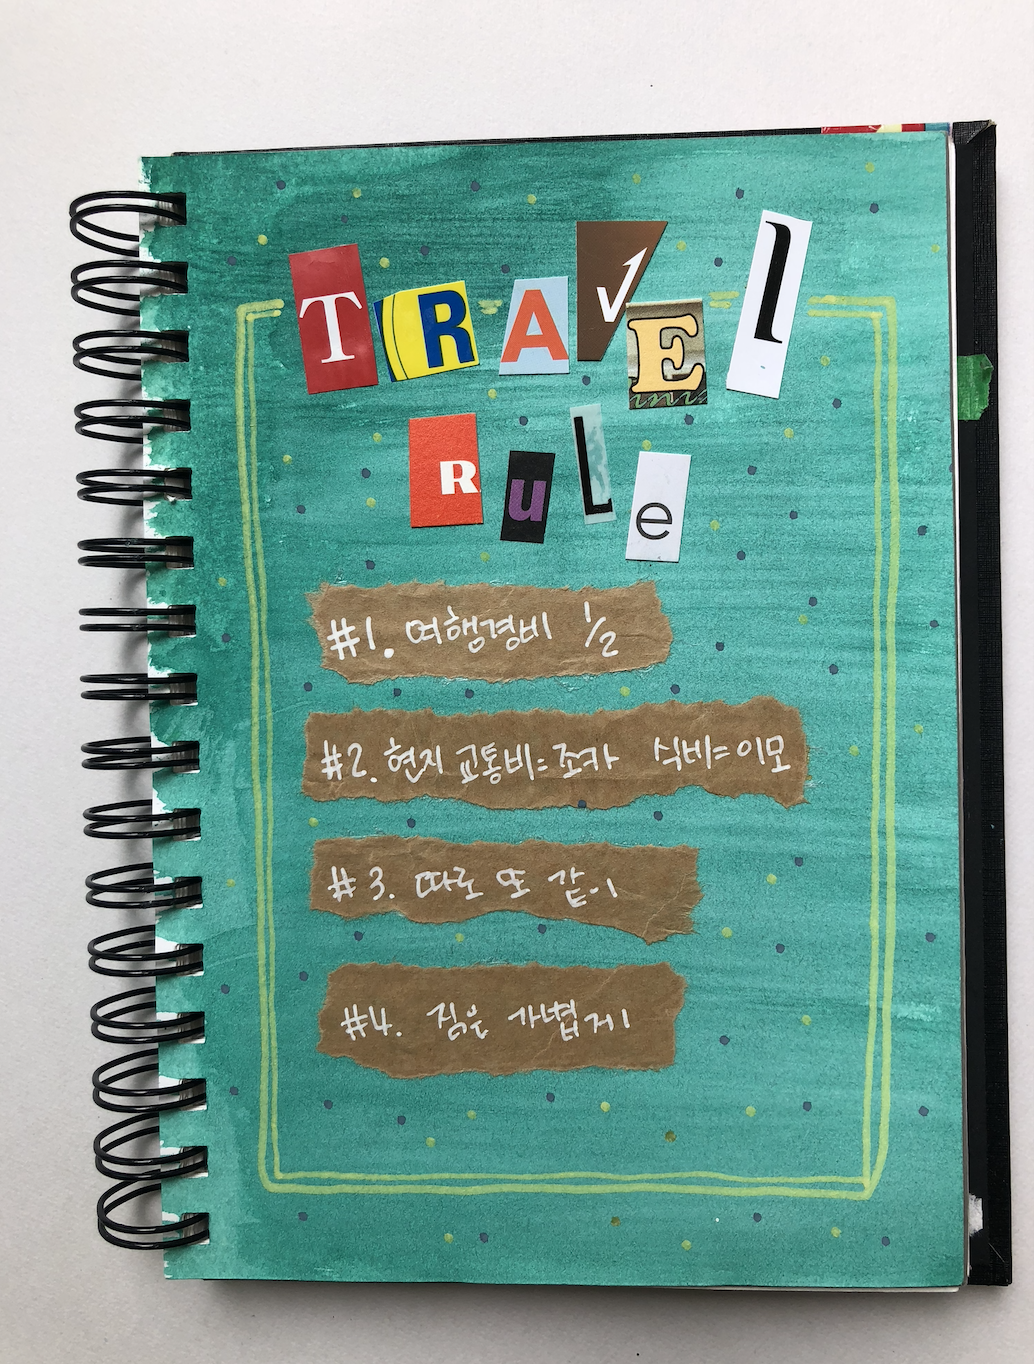 TRAVEl
RuLe
#1. 여행경비 1/2
#2. 현지 교통비=조카 식비=이모
#3. 따로 또 같이
#4. 짐은 가볍게